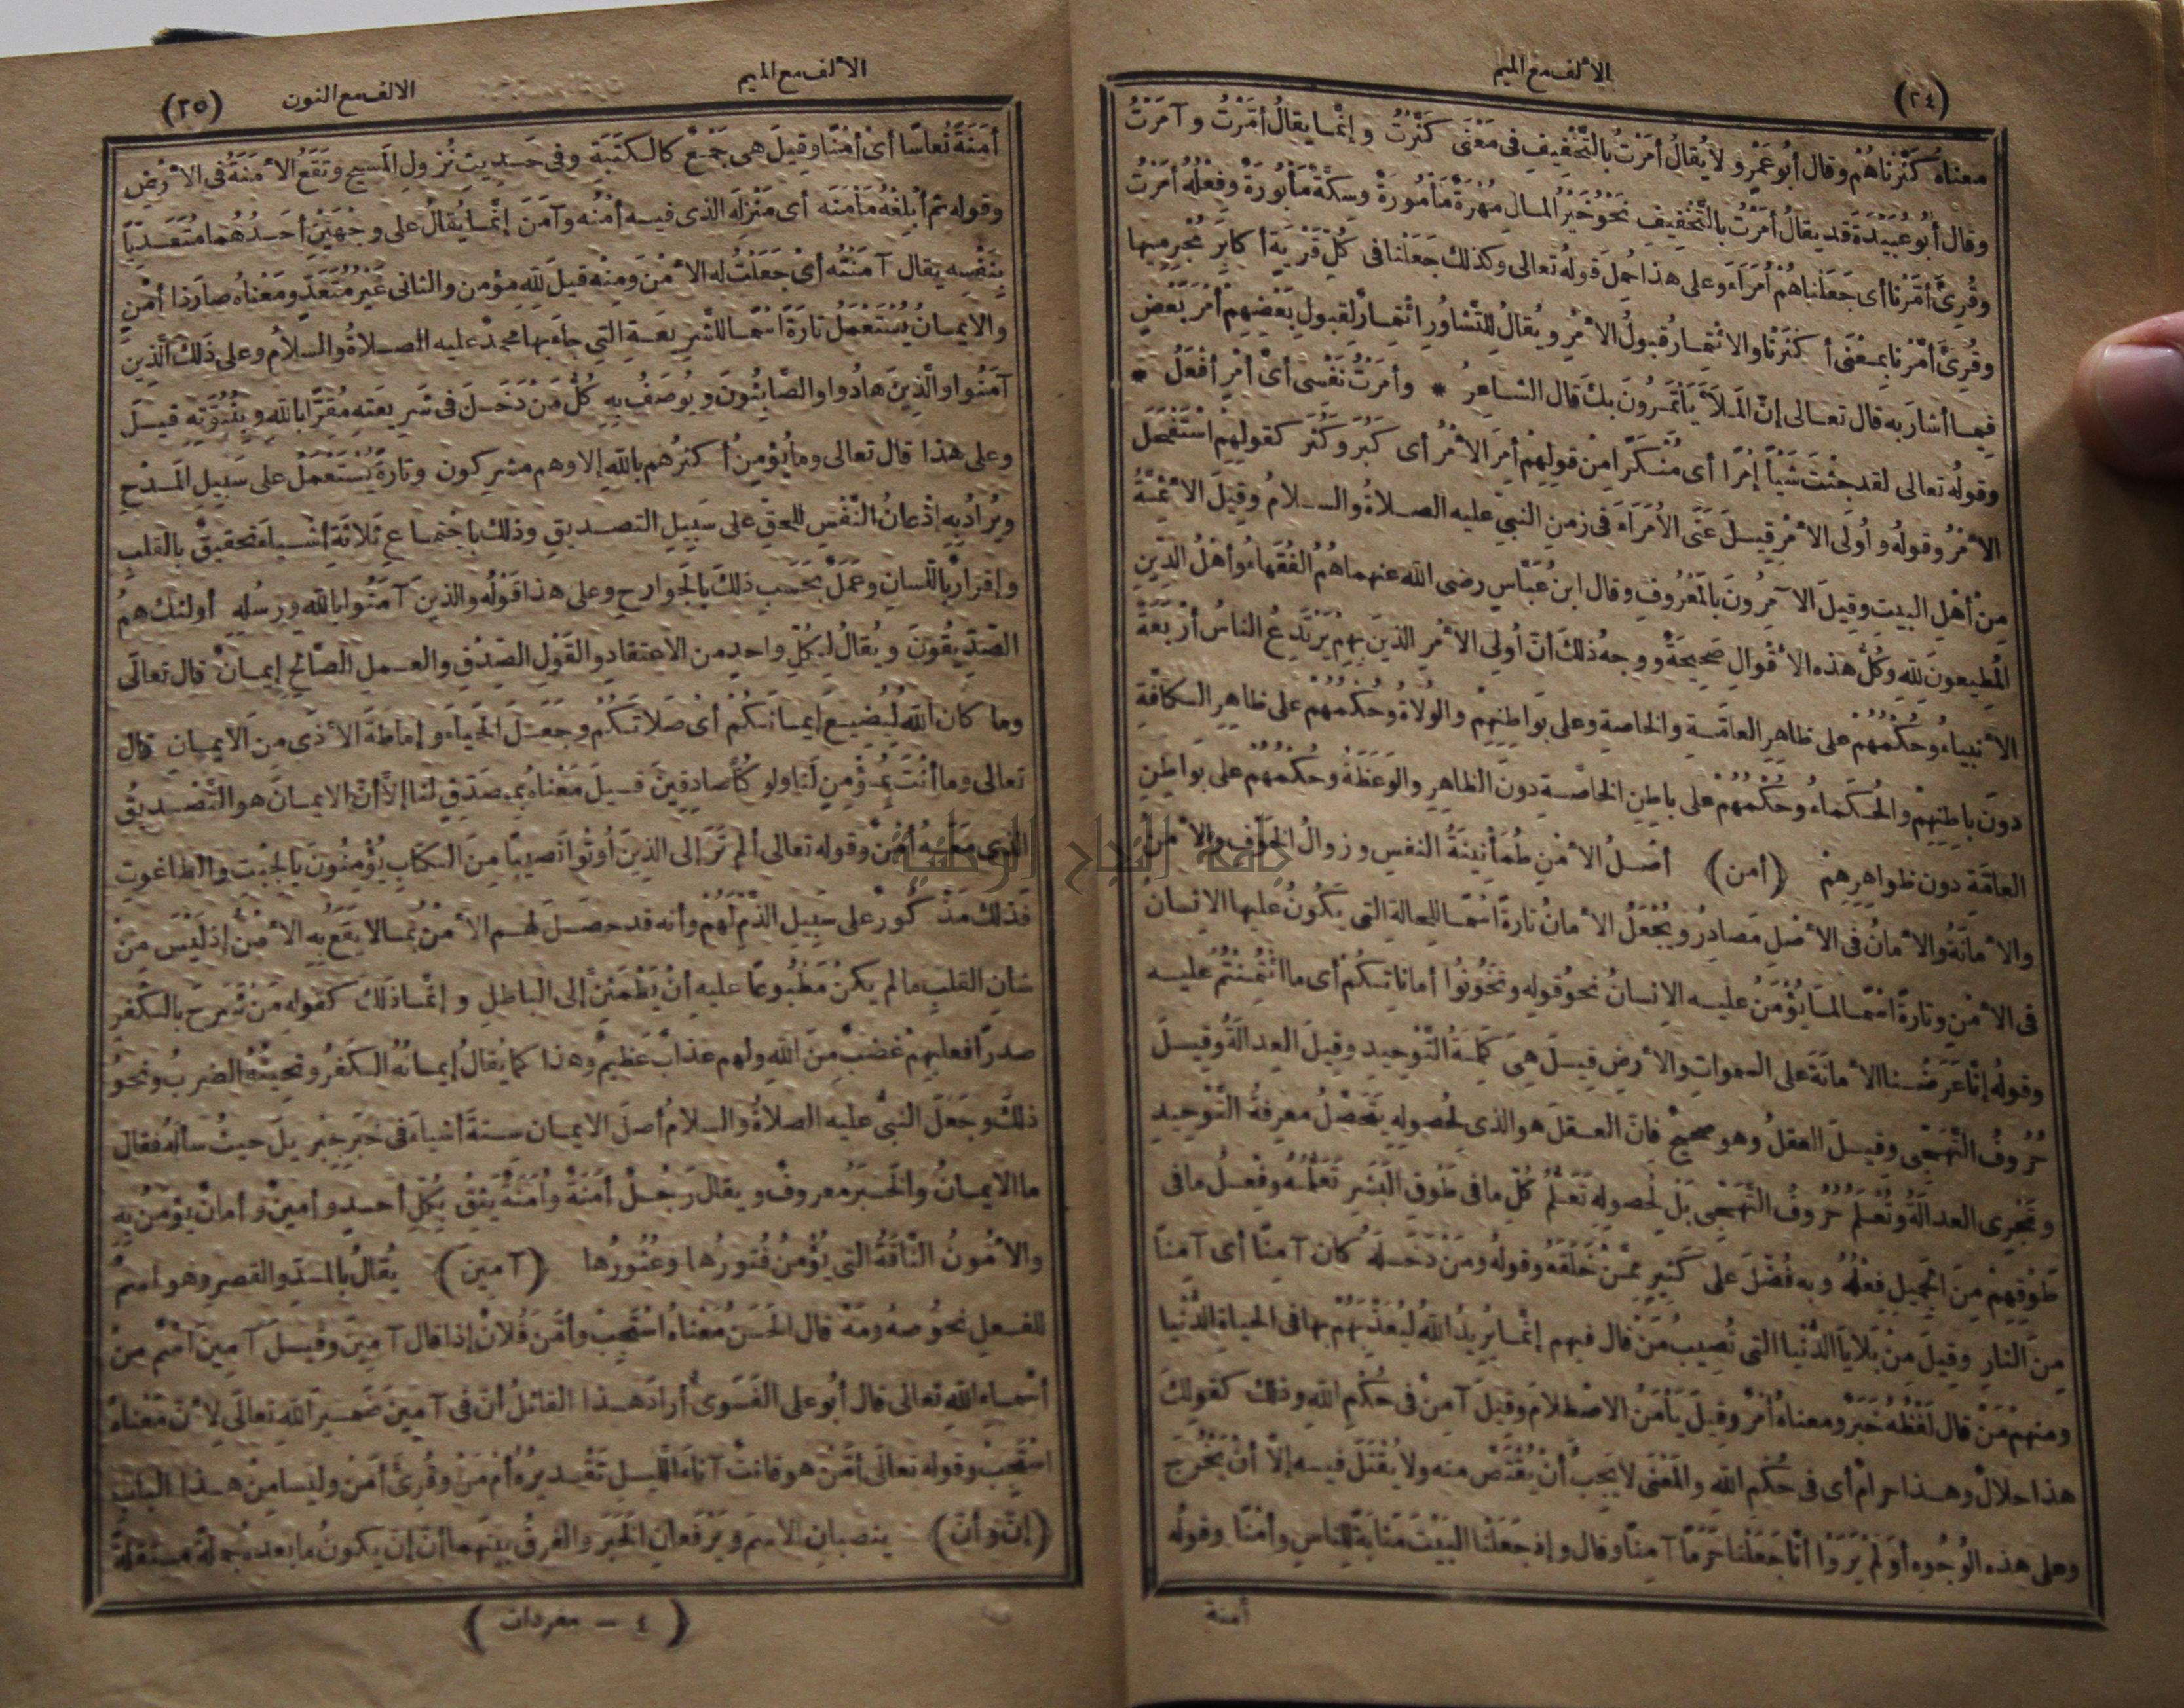 (٢٤)
الألف مع الميم
معناهُ كَثَّرْناهُمْ وقال أبُو عَمْرٍو لا يُقالُ أمَرْتُ بالتَّخْفِيفِ فى مَعْنَى كَثَّرْتُ وإنَّما يقالُ أمَّرْتُ وآمَرْتُ
وقال أبُو عُبَيْدَةَ قد يقالُ أمَرْتُ بالتَّخْفِيفِ نحوُ خَيْرُ المالِ مُهْرَةٌ مَأْمُورَةٌ وسِكَّةٌ مَأْبُورَةٌ وفِعْلُهُ أمَرْتُ
وقُرِئَ أمَّرْنا أى جَعَلْناهُمْ أُمَرَاءَ وعلى هذا حُمِلَ قولُه تعالى وكذلك جَعَلْنا فى كُلِّ قَرْيَةٍ أكابِرَ مُجْرِمِيها
وقُرِئَ أمَرْنا بِمَعْنَى أكْثَرْنا والائْتِمارُ قبولُ الأمْرِ ويُقالُ لِلتَّشاوُرِ ائْتِمارٌ لِقبولِ بَعْضِهِمْ أمْرَ بَعْضٍ
فيما أشارَ به قال تعالى إنَّ المَلَأَ يَأْتَمِرُونَ بِكَ قال الشاعِرُ * وأمَرْتُ نَفْسِى أىَّ أمْرٍ أفْعَلُ *
وقولُه تعالى لقد جِئْتَ شَيْأً إمْرًا أى مُنْكَرًا مِنْ قولِهِمْ أمِرَ الأمْرُ أى كَبُرَ وكَثُرَ كقولِهِمْ اسْتَفْحَلَ
الأمْرُ وقولُه وأُولِى الأمْرِ قِيلَ عَنَى الأُمَرَاءَ فى زمنِ النبىِّ عليه الصلاةُ والسلامُ وقِيلَ الأئمَّةُ
مِنْ أهْلِ البيتِ وقِيلَ الآمِرُونَ بالمَعْرُوفِ وقال ابنُ عَبَّاسٍ رضى الله عنهما هُمُ الفُقَهاءُ وأهْلُ الدِّينِ
المُطِيعونَ للهِ وكُلُّ هذه الأقْوالِ صَحِيحَةٌ ووجهُ ذلك أنَّ أُولِى الأمْرِ الذينَ بهِمْ يَرْتَدِعُ الناسُ أرْبَعَةٌ
الأنبياءُ وحُكْمُهُمْ على ظاهِرِ العامَّةِ والخاصةِ وعلى بواطنِهِمْ والوُلاةُ وحُكْمُهُمْ على ظاهِرِ الكافَّةِ
دونَ باطِنِهِمْ والحُكَماءُ وحُكْمُهُمْ على باطِنِ الخاصَّةِ دونَ الظاهِرِ والوَعَظَةُ وحُكْمُهُمْ على بواطِنِ
العامَّةِ دون ظواهِرِهِمْ (أمن) أصْلُ الأمْنِ طُمَأْنِينَةُ النفسِ وزوالُ الخَوْفِ والأمْنُ
والأمانَةُ والأمانُ فى الأصْلِ مَصادِرُ ويُجْعَلُ الأمانُ تارةً اسْمًا للحالةِ التى يَكُونُ عليها الانسانُ
فى الأمْنِ وتارةً اسْمًا لما يُؤْمَنُ عليه الانسانُ نحوُ قولِه وتَخُونُوا أماناتِكُمْ أى ما ائْتُمِنْتُمْ عليه
وقولُه إنَّا عَرَضْنا الأمانَةَ على السموات والأرضِ قِيلَ هِىَ كَلِمَةُ التَّوْحِيدِ وقِيلَ العدالَةُ وقِيلَ
حُرُوفُ التَّهَجِّى وقِيلَ العقلُ وهو صحيحٌ فانَّ العقلَ هو الذى لِحُصولِه يَتَحَصَّلُ معرِفةُ التَّوْحِيدِ
وتَجْرِى العدالَةُ وتُعْلَمُ حُرُوفُ التَّهَجِّى بَلْ لِحصولِه تَعَلُّمُ كُلِّ ما فى طَوْقِ البَشَرِ تَعَلُّمُهُ وفِعْلُ ما فى
طَوْقِهِمْ مِنَ الجَمِيلِ فِعْلُهُ وبه فُضِّلَ على كَثِيرٍ مِمَّنْ خَلَقَهُ وقولُه ومَنْ دَخَلَهُ كان آمِنًا أى آمِنًا
مِنَ النارِ وقِيلَ مِنْ بَلايا الدُّنْيا التى تُصِيبُ مَنْ قال فيهم إنَّما يُرِيدُ اللهُ لِيُعَذِّبَهُمْ بها فى الحياةِ الدُّنْيا
ومنهمْ مَنْ قال لَفْظُهُ خَبَرٌ ومعناهُ أمْرٌ وقِيلَ يَأْمَنُ الاصْطِلامَ وقِيلَ آمِنٌ فى حُكْمِ اللهِ وذلك كقولِكَ
هذا حلالٌ وهذا حرامٌ أى فى حُكْمِ اللهِ والمَعْنَى لا يَجِبُ أنْ يُقْتَصَّ منه ولا يُقْتَلَ فيه إلَّا أنْ يَخْرُجَ
وعلى هذه الوُجُوهِ أوَلَمْ يَرَوْا أنَّا جَعَلْنا حَرَمًا آمِنًا وقال وإذ جَعَلْنا البَيْتَ مَثابَةً للناسِ وأمْنًا وقولُه
أمنة
الألف مع الميم
الالف مع النون
(٢٥)
أمَنَةً نُعاسًا أى أمْنًا وقِيلَ هى جَمْعٌ كالكَتَبَةِ وفى حَدِيثِ نُزولِ المَسِيحِ وتَقَعُ الأمَنَةُ فى الأرْضِ
وقوله ثم أبْلِغْهُ مَأْمَنَه أى مَنْزِلَه الذى فيه أمْنُه وآمَنَ إنَّما يُقالُ على وجْهَيْنِ أحَدُهُما مُتَعَدِّيًا
بِنَفْسِه يقال آمَنْتُه أى جَعَلْتُ له الأمْنَ ومنه قيلَ للهِ مؤمن والثانى غَيْرُ مُتَعَدٍّ ومَعْناهُ صارَ ذا أمْنٍ
والايمانُ يُسْتَعْمَلُ تارَةً اسْمًا للشَّرِيعَةِ التى جاءَ بها محمدٌ عليه الصلاةُ والسلامُ وعلى ذلك الَّذِينَ
آمَنُوا والَّذِينَ هادُوا والصَّابِئُونَ ويُوصَفُ بِهِ كُلُّ مَنْ دَخَلَ فى شَرِيعَتِه مُقِرًّا باللهِ وبِنُبُوَّتِه قيلَ
وعلى هذا قال تعالى وما يُؤْمِنُ أكثرُهم باللهِ إلا وهم مشركون وتارةً يُسْتَعْمَلُ على سَبِيلِ المَدْحِ
ويُرادُ به إذْعانُ النَّفْسِ للحقِّ على سَبِيلِ التصديقِ وذلك باجْتِماعِ ثَلاثَةِ أشْياءَ تحقيقٌ بالقلبِ
وإقرارٌ باللّسانِ وعَمَلٌ بحَسَبِ ذلكَ بالجَوارِحِ وعلى هذا قَوْلُه والذينَ آمَنُوا باللهِ ورسُلِه أولئك همُ
الصّدِّيقُونَ ويُقالُ لِكُلِّ واحدٍ من الاعتقادِ والقَوْلِ الصّدْقِ والعملِ الصَّالحِ إيمانٌ قال تعالَى
وما كان اللهُ لِيُضِيعَ إيمانَكُمْ أى صَلاتَكُمْ وجَعَلَ الحَياءَ وإماطَةَ الأذَى مِنَ الايمانِ قال
تعالى وما أنْتَ بِمُؤْمِنٍ لَنا ولو كُنَّا صادِقِينَ قِيلَ مَعْناهُ بِمُصَدِّقٍ لنا إلَّا أنَّ الايمانَ هو التَّصْدِيقُ
الذى مَعَهُ أمْنٌ وقوله تعالى ألم تَرَ إلى الذِينَ أُوتُوا نَصِيبًا مِنَ الكتابِ يُؤْمِنُونَ بالجِبْتِ والطاغوتِ
فذلك مَذْكُورٌ على سَبِيلِ الذَّمِّ لَهُمْ وأنه قد حصَلَ لهم الأمْنُ بما لا يَقَعُ بِهِ الأمْنُ إذ لَيْسَ مِنْ
شأنِ القلبِ ما لم يكنْ مَطْبُوعًا عليه أنْ يَطْمَئِنَّ إلى الباطلِ وإنَّما ذلك كقوله مَنْ شَرَحَ بالكُفْرِ
صدرًا فعليهِمْ غضبٌ مِنَ اللهِ ولهم عذابٌ عظيمٌ وهذا كما يُقالُ إيمانُهُ الكفرُ وتَحِيَّتُهُ الضربُ ونحوُ
ذلك وجَعَلَ النبىُّ عليه الصلاةُ والسلامُ أصلَ الايمانِ ستةَ أشياءَ فى خبرِ جِبْرِيلَ حيثُ سألَهُ فقال
ما الايمانُ والخَبَرُ معروفٌ ويقالُ رَجُلٌ أمَنَةٌ وأُمَنَةٌ يَثِقُ بِكُلِّ أحدٍ وأمينٌ وأمانٌ يُؤْمَنُ بِهِ
والأمُونُ النَّاقَةُ التى يُؤْمَنُ فُتُورُها وعُثُورُها (آمينَ) يُقالُ بالمدِّ والقصرِ وهو اسمٌ
للفعلِ نحوُ صه ومَهْ قال الحَسَنُ مَعْناهُ اسْتَجِبْ وأمَّنَ فُلانٌ إذا قال آمِينَ وقيلَ آمِينَ اسْمٌ مِنْ
أسْماءِ اللهِ تعالى قال أبُو على الفَسَوِىُّ أرادَ هذا القائلُ أنَّ فى آمِينَ ضَمِيرَ اللهِ تعالَى لِأنَّ مَعْناهُ
اسْتَجِبْ وقوله تعالَى أمَّنْ هو قانتٌ آناءَ الليلِ تَقْدِيرُهُ أمْ مَنْ وقُرِئَ أمَنْ وليسا مِنْ هذا البابِ
(إنَّ وأنَّ) ينصبانِ الاسمَ ويَرْفَعانِ الخَبَرَ والفرقُ بينهما أنَّ إنَّ يكونُ ما بعده جملةً مستقلةً
(٤ - مفردات)
جامعة النجاح الوطنية